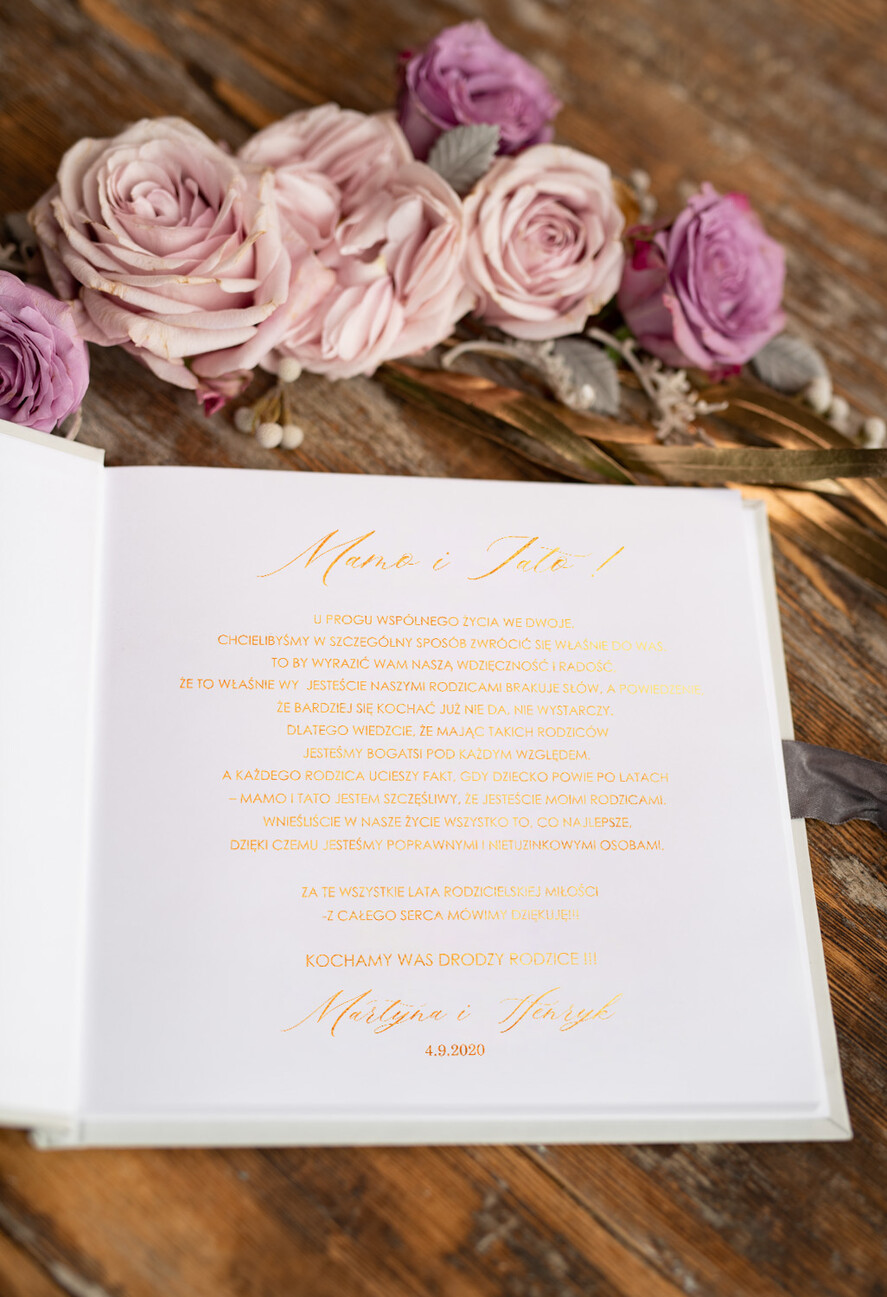 Mamo i Tato !
U PROGU WSPÓLNEGO ŻYCIA WE DWOJE,
CHCIELIBYŚMY W SZCZEGÓLNY SPOSÓB ZWRÓCIĆ SIĘ WŁAŚNIE DO WAS,
TO BY WYRAZIĆ WAM NASZĄ WDZIĘCZNOŚĆ I RADOŚĆ
ŻE TO WŁAŚNIE WY JESTEŚCIE NASZYMI RODZICAMI BRAKUJE SŁÓW, A POWIEDZIEĆ,
ŻE BARDZIEJ SIĘ KOCHAĆ JUŻ NIE DA, NIE WYSTARCZY.
DLATEGO WIEDZCIE, ŻE MAJĄC TAKICH RODZICÓW
JESTEŚMY BOGATSI POD KAŻDYM WZGLĘDEM.
A KAŻDEGO RODZICA UCIESZY FAKT, GDY DZIECKO POWIE PO LATACH
– MAMO I TATO JESTEM SZCZĘŚLIWY, ŻE JESTEŚCIE MOIMI RODZICAMI.
WNIEŚLIŚCIE W NASZE ŻYCIE WSZYSTKO TO, CO NAJLEPSZE,
DZIĘKI CZEMU JESTEŚMY POPRAWNYMI I NIETUZINKOWYMI OSOBAMI.
ZA TE WSZYSTKIE LATA RODZICIELSKIEJ MIŁOŚCI
-Z CAŁEGO SERCA MÓWIMY DZIĘKUJĘ!!!
KOCHAMY WAS DRODZY RODZICE !!!
Martyna i Henryk
4.9.2020